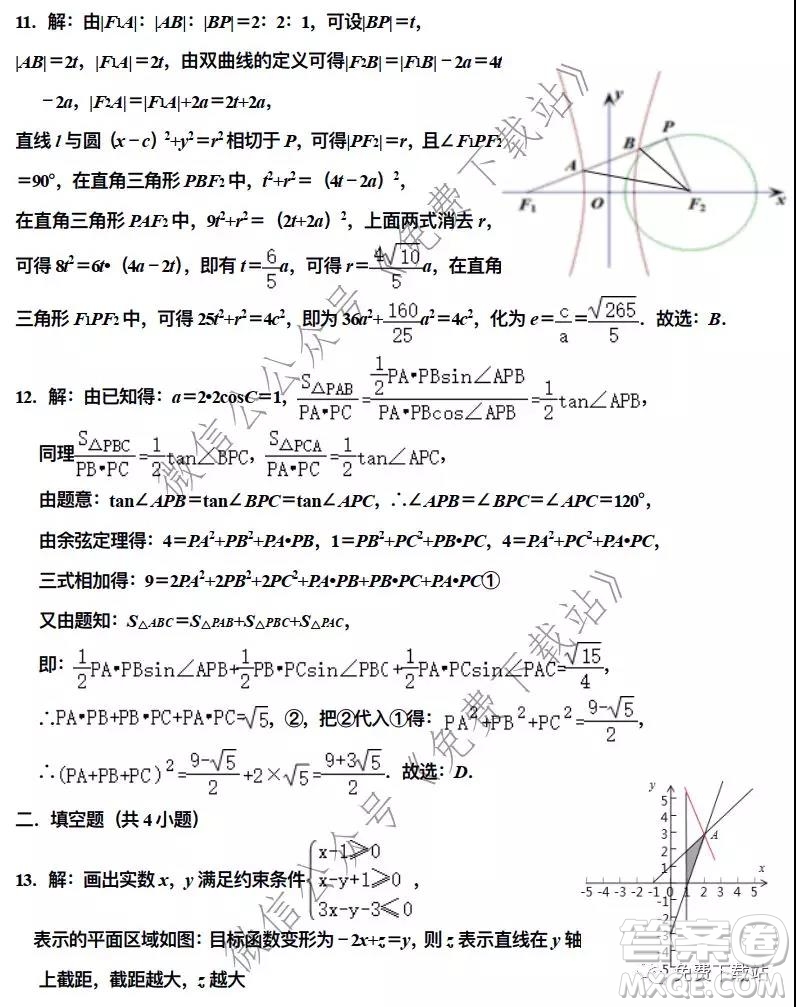 11. 解：由|F₁A|：|AB|：|BP|＝2：2：1，可设|BP|＝t，
|AB|＝2t，|F₁A|＝2t，由双曲线的定义可得|F₂B|＝|F₁B|－2a＝4t
－2a，|F₂A|＝|F₁A|+2a＝2t+2a，
直线 l 与圆（x－c）²+y²＝r² 相切于 P，可得|PF₂|＝r，且∠F₁PF₂
＝90°，在直角三角形 PBF₂ 中，t²+r²＝（4t－2a）²，
在直角三角形 PAF₂ 中，9t²+r²＝（2t+2a）²，上面两式消去 r，
可得 8t²＝6t•（4a－2t），即有 t＝6/5 a，可得 r＝4√10/5 a，在直角
三角形 F₁PF₂ 中，可得 25t²+r²＝4c²，即为 36a²+160/25 a²＝4c²，化为 e＝c/a＝√265/5．故选：B．
y
P
B
A
F₁
O
F₂
x
12. 解：由已知得：a＝2•2cosC＝1，S△PAB/PA•PC＝½PA•PBsin∠APB/PA•PBcos∠APB＝½tan∠APB，
同理 S△PBC/PB•PC＝½tan∠BPC，S△PCA/PA•PC＝½tan∠APC，
由题意：tan∠APB＝tan∠BPC＝tan∠APC，∴∠APB＝∠BPC＝∠APC＝120°，
由余弦定理得：4＝PA²+PB²+PA•PB，1＝PB²+PC²+PB•PC，4＝PA²+PC²+PA•PC，
三式相加得：9＝2PA²+2PB²+2PC²+PA•PB+PB•PC+PA•PC①
又由题知：S△ABC＝S△PAB+S△PBC+S△PAC，
即：½PA•PBsin∠APB+½PB•PCsin∠PBC+½PA•PCsin∠PAC＝√15/4，
∴PA•PB+PB•PC+PA•PC＝√5，②，把②代入①得：PA²+PB²+PC²＝9-√5/2，
∴(PA+PB+PC)²＝9-√5/2+2×√5＝9+3√5/2．故选：D．
二．填空题（共 4 小题）
13. 解：画出实数 x，y 满足约束条件{x-1≥0
x-y+1≥0，
3x-y-3≤0
表示的平面区域如图：目标函数变形为－2x+z＝y，则 z 表示直线在 y 轴
上截距，截距越大，z 越大
y
5
4
3
2
1
A
x
-5 -4 -3 -2 -1 1 2 3 4 5
-1
-2
-3
-4
-5
微信公众号《免费下载站》
微信公众号《免费下载站》
免费下载站
答案圈